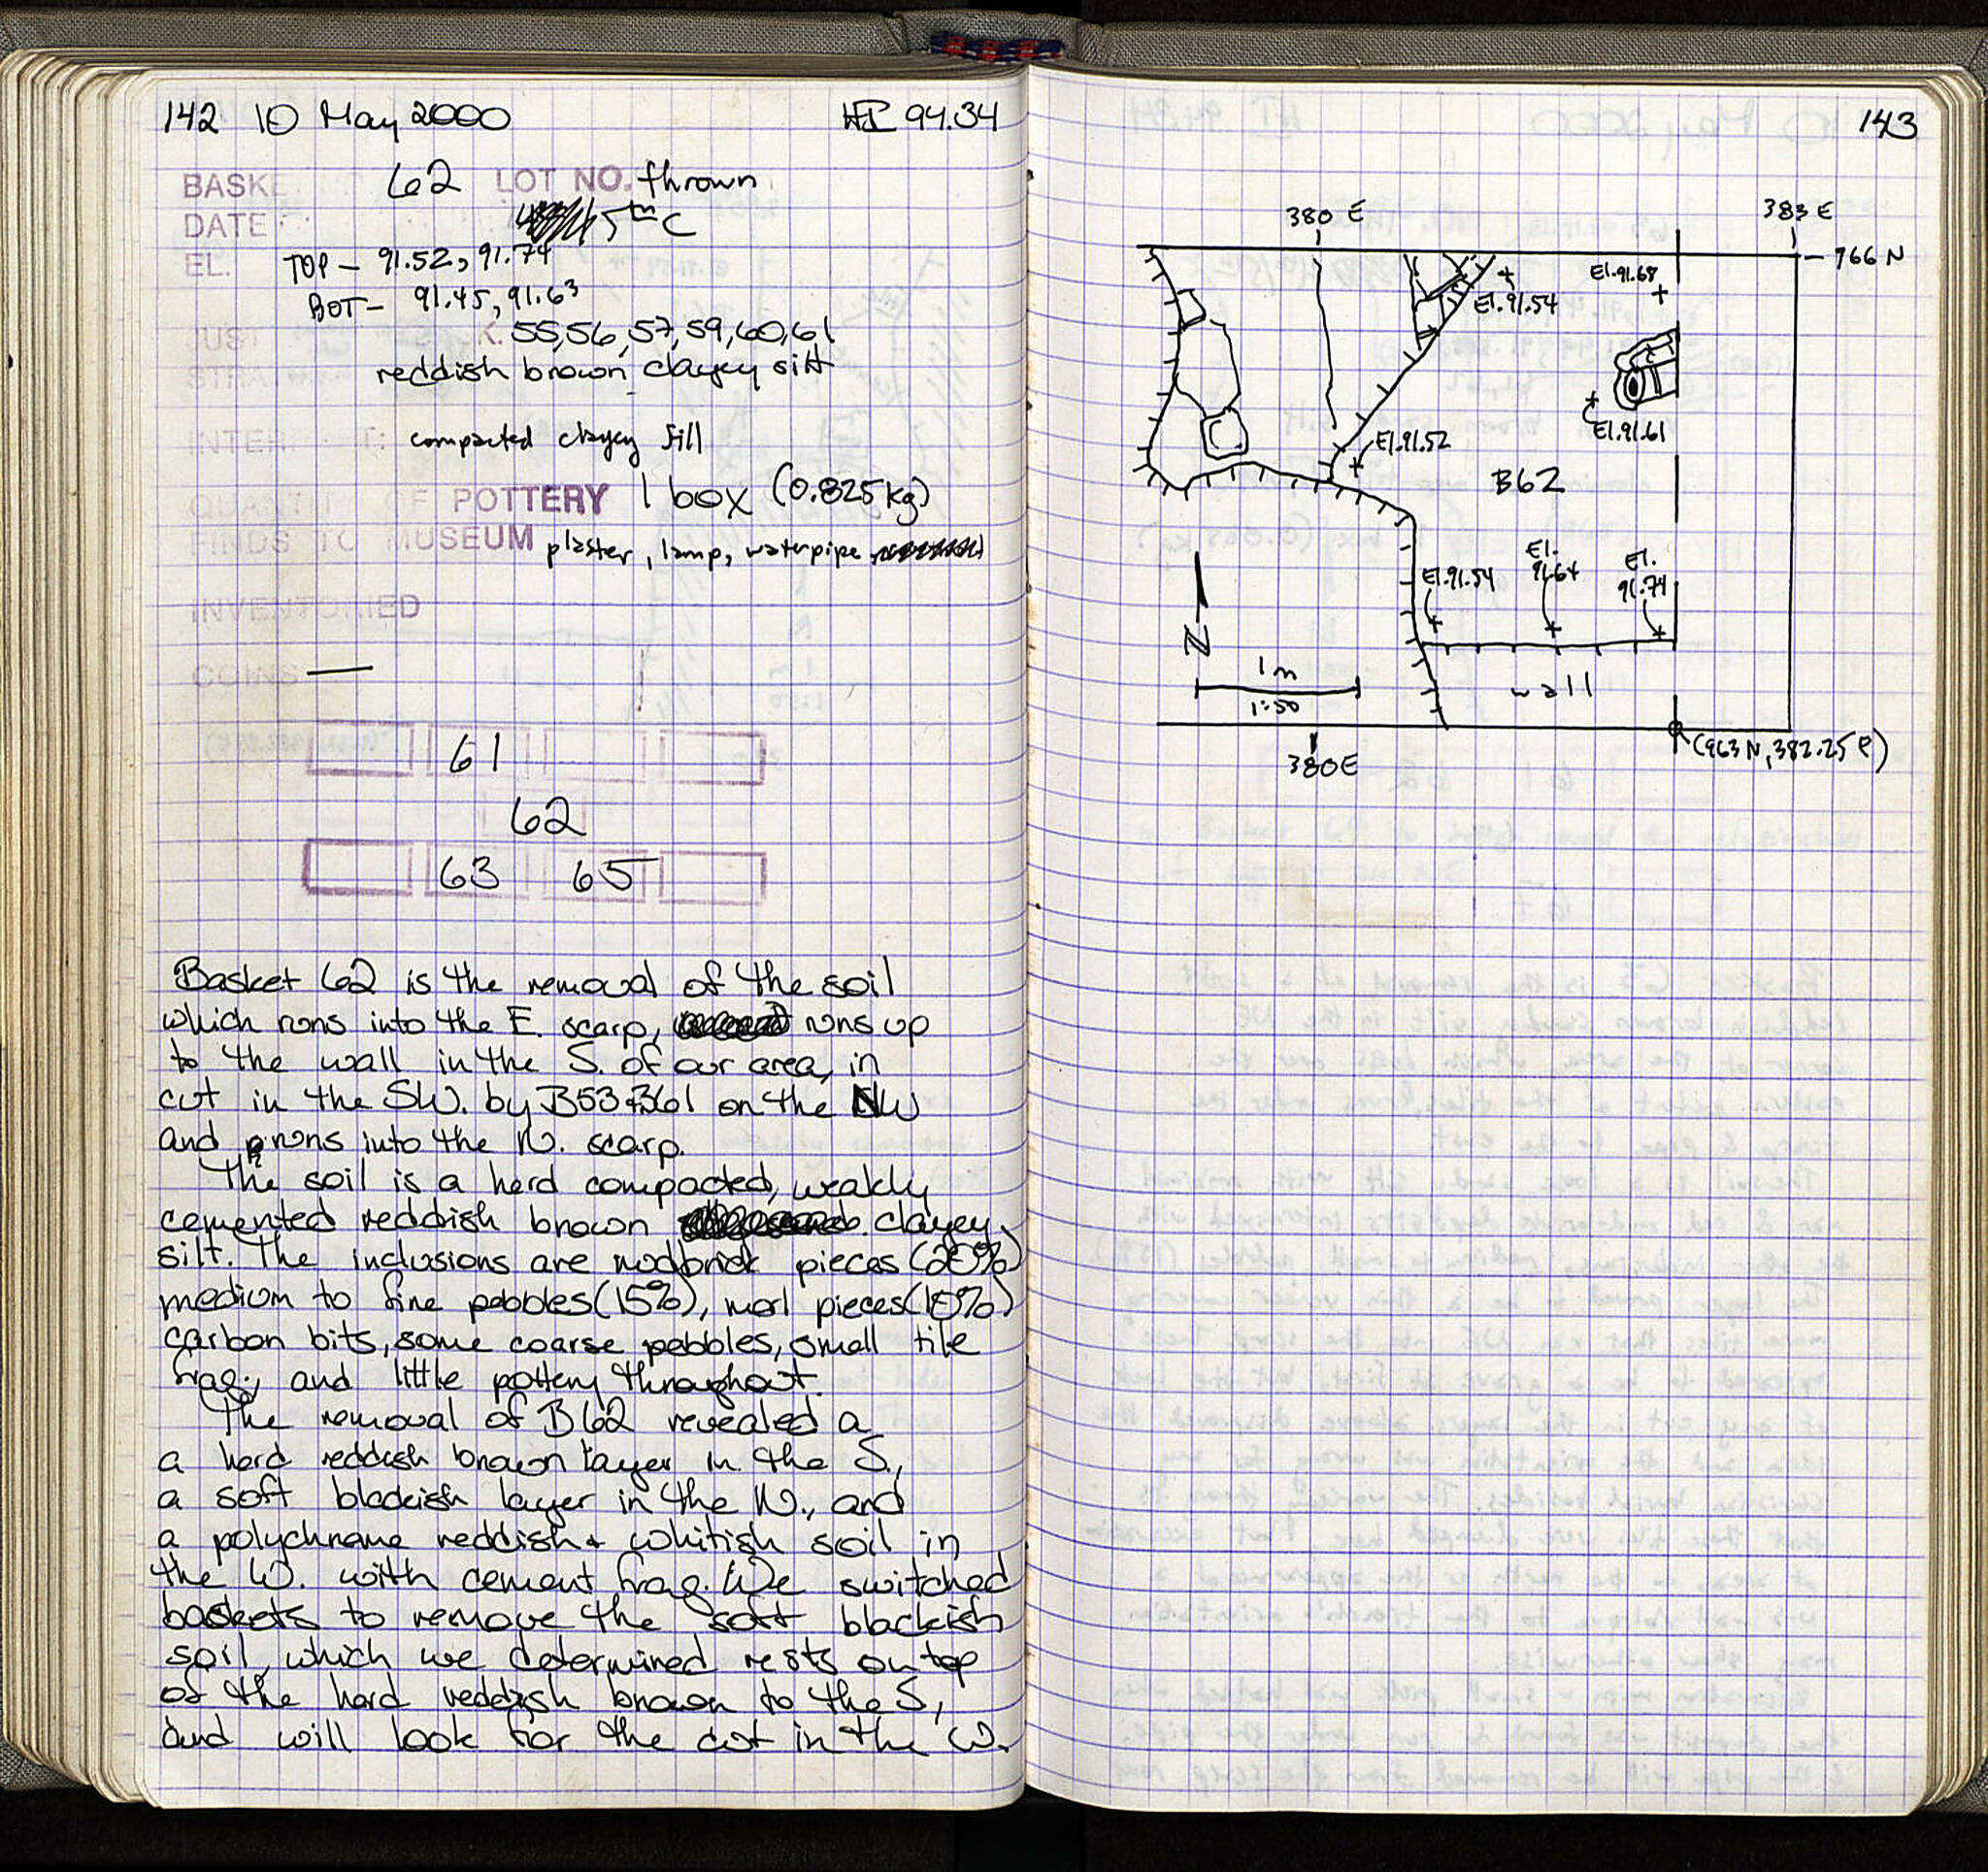 142 10 May 2000 HI 94.34
BASKE 62 LOT NO. thrown
DATE: 5th C
EL. TOP - 91.52, 91.74
BOT - 91.45, 91.63
JUST 55, 56, 57, 59, 60, 61
STRA reddish brown clayey silt
INTER T: compacted clayey fill
QUANTITY OF POTTERY 1 box (0.825 kg)
FINDS TO MUSEUM plaster, lamp, waterpipe
INVENTORIED
COINS —
61
62
63 65
Basket 62 is the removal of the soil
which runs into the E. scarp, runs up
to the wall in the S. of our area, in
cut in the SW. by B53 + B61 on the NW
and runs into the N. scarp.
The soil is a hard compacted, weakly
cemented reddish brown clayey
silt. The inclusions are mudbrick pieces (20%)
medium to fine pebbles (15%), marl pieces (15%)
carbon bits, some coarse pebbles, small tile
frag., and little pottery throughout.
The removal of B62 revealed a
a hard reddish brown layer in the S.,
a soft blackish layer in the N., and
a polychrome reddish + whitish soil in
the W. with cement frag. We switched
baskets to remove the soft blackish
soil, which we determined rests on top
of the hard reddish brown to the S,
and will look for the cut in the W.
143
380 E 383 E
766 N
El. 91.68
El. 91.54
El. 91.61
El. 91.52
B62
El. 91.54
El. 91.64
El. 91.74
N
1 m
1:50
wall
380 E
(963 N, 382.25 E)